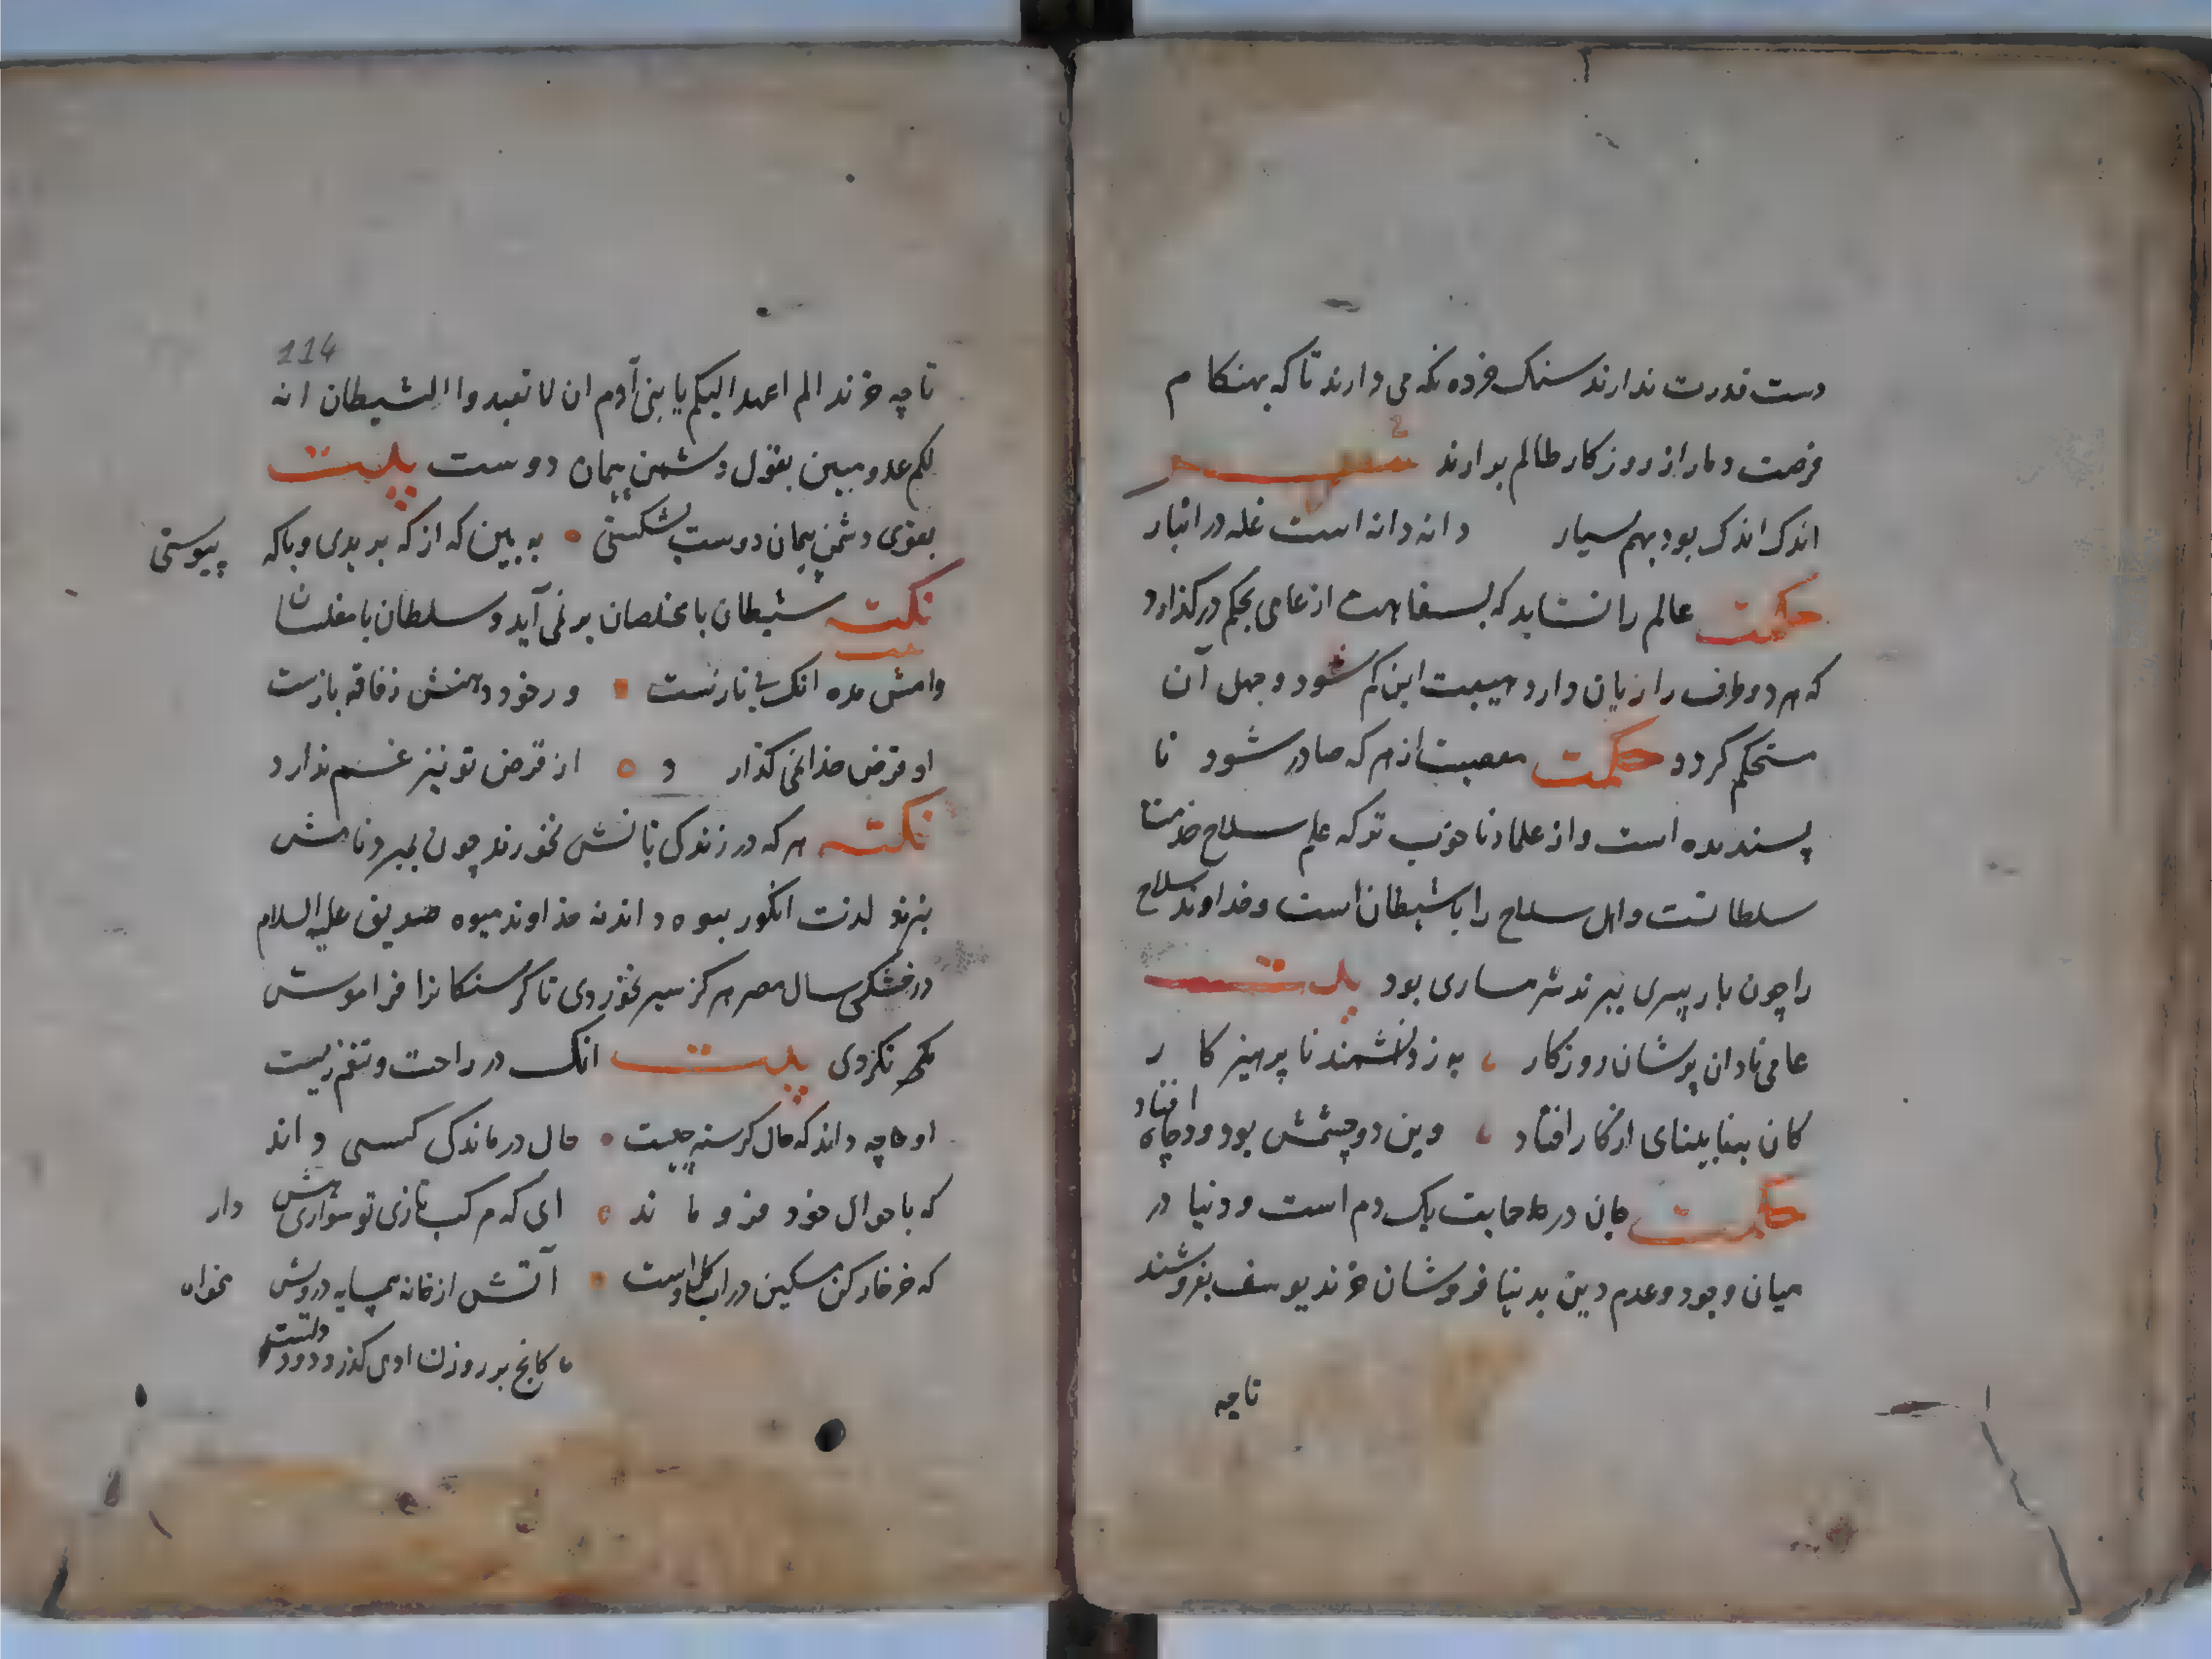 دست قدرت ندارند سنک خرده نکه می دارند تا که بهنکام
فرصت دمار از روزکار ظالم برارند شعر
اندک اندک بود بهم بسیار دانه دانه است غله در انبار
حکمت عالم را نشاید که بسفاهت از عامی بحکم درکذارد
که هر دو طرف را زیان دارد هیبت این کم شود و جهل آن
مستحکم کردد حکمت معصیت از هر که صادر شود نا
پسندیده است و از علما ناخوب تر که علم سلاح جنک
سلطانست و اهل سلاح را با شیطان است و خداوند سلاح
را چون باسیری ببرند شرمساری بود بیت
عامی نادان پریشان روزکار به ز دانشمند نا پرهیز کار
کان بنابینای از کار افتاد وین دو چشمش بود و در چاه افتاد
حکمت جان در حمایت یک دم است و دنیا در
میان وجود و عدم دین بدنیا فروشان خرند یوسف بفروشند
تا چه
114
تا چه خرند الم اعهد الیکم یا بنی آدم ان لا تعبدوا الشیطان انه
لکم عدو مبین بقول دشمن پیمان دوست بیت
بقول دشمن پیمان دوست بشکستی به بین که از که بریدی و با که پیوستی
نکته شیطان با مخلصان بر نمی آید و سلطان با مفلسان
بیت
وامش مده انک بی نمازست ور خود دهنش ز فاقه بازست
او قرض خدا نمی کذارد از قرض تو نیز غم ندارد
نکته هر که در زندکی نانش نخورند چون بمیرد نامش
نبرند لذت انکور بیوه داند نه خداوند میوه صدیق علیه السلام
در خشکی سال مصر هرکز سیر نخوردی تا کرسنکانرا فراموش
نکردی بیت انک در راحت و تنعم زیست
او چه داند که حال کرسنه چیست حال درماندکی کسی داند
که باحوال خود فرو ماند ای که بر مرکب تازی تو سواری هش دار
که خر خارکن مسکین در آب و کل است آتش از خانه همسایه درویش مخواه
کانچ بر روزن او می کذرد دود دلست